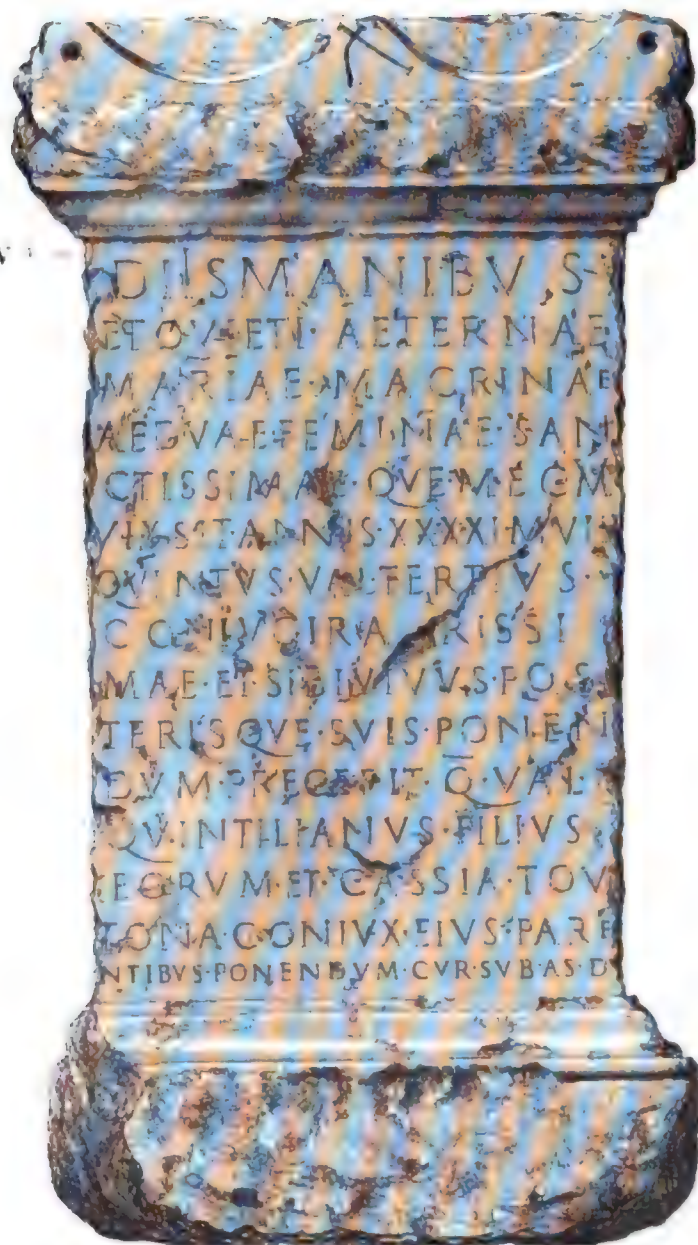 DIIS MANIBVS
ET QVIETI · AETERNAE
MARIAE · MACRINAE
AEDVAE · FEMINAE · SAN
CTISSIMAE · QVE · MECM
VIXSIT · ANNIS · XXXXI · M · VI
QVINTVS · VAL · TERTIVS ·
MAE · ET · SIBI · VIVVS · POS
TERISQVE · SVIS · PONEN
DVM · PRECEPIT · Q · VAL ·
QVINTILIANVS · FILIVS
EORVM · ET · CASSIA · TOV
TONA CONIVX · EIVS · PARE
NTIBVS · PONENDVM · CVR · SVB · AS · D